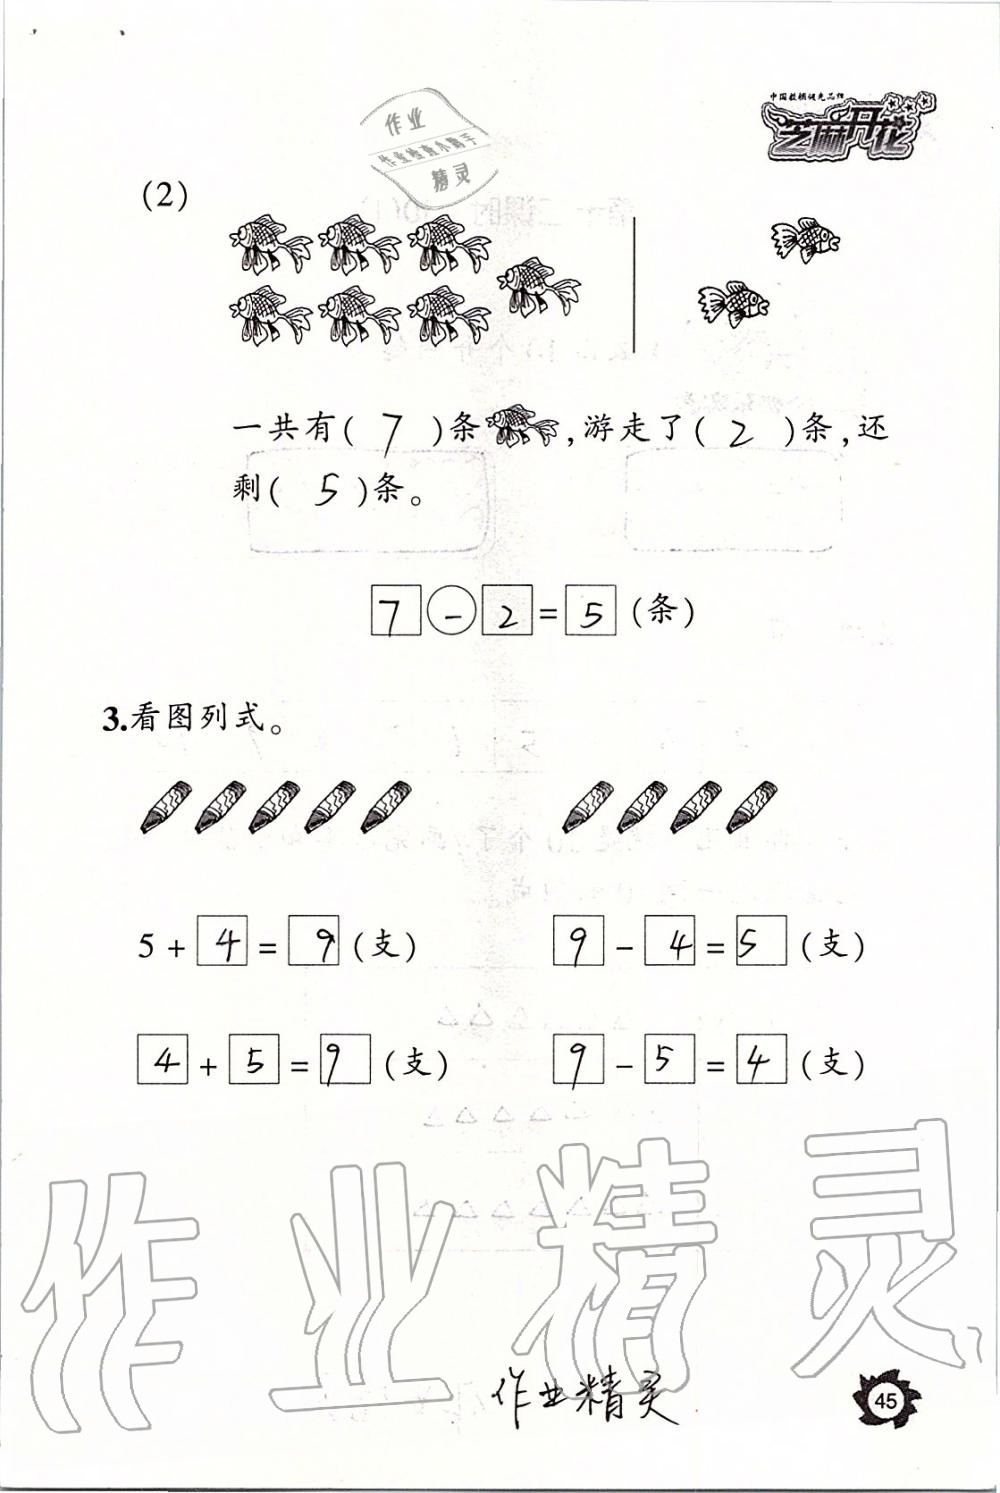 中国教辅领先品牌
芝麻开花
作业
作业检查小帮手
精灵
(2)
一共有( 7 )条 ,游走了( 2 )条,还
剩( 5 )条。
7 - 2 = 5 (条)
3.看图列式。
5 + 4 = 9 (支) 9 - 4 = 5 (支)
4 + 5 = 9 (支) 9 - 5 = 4 (支)
作业精灵
作业精灵
45